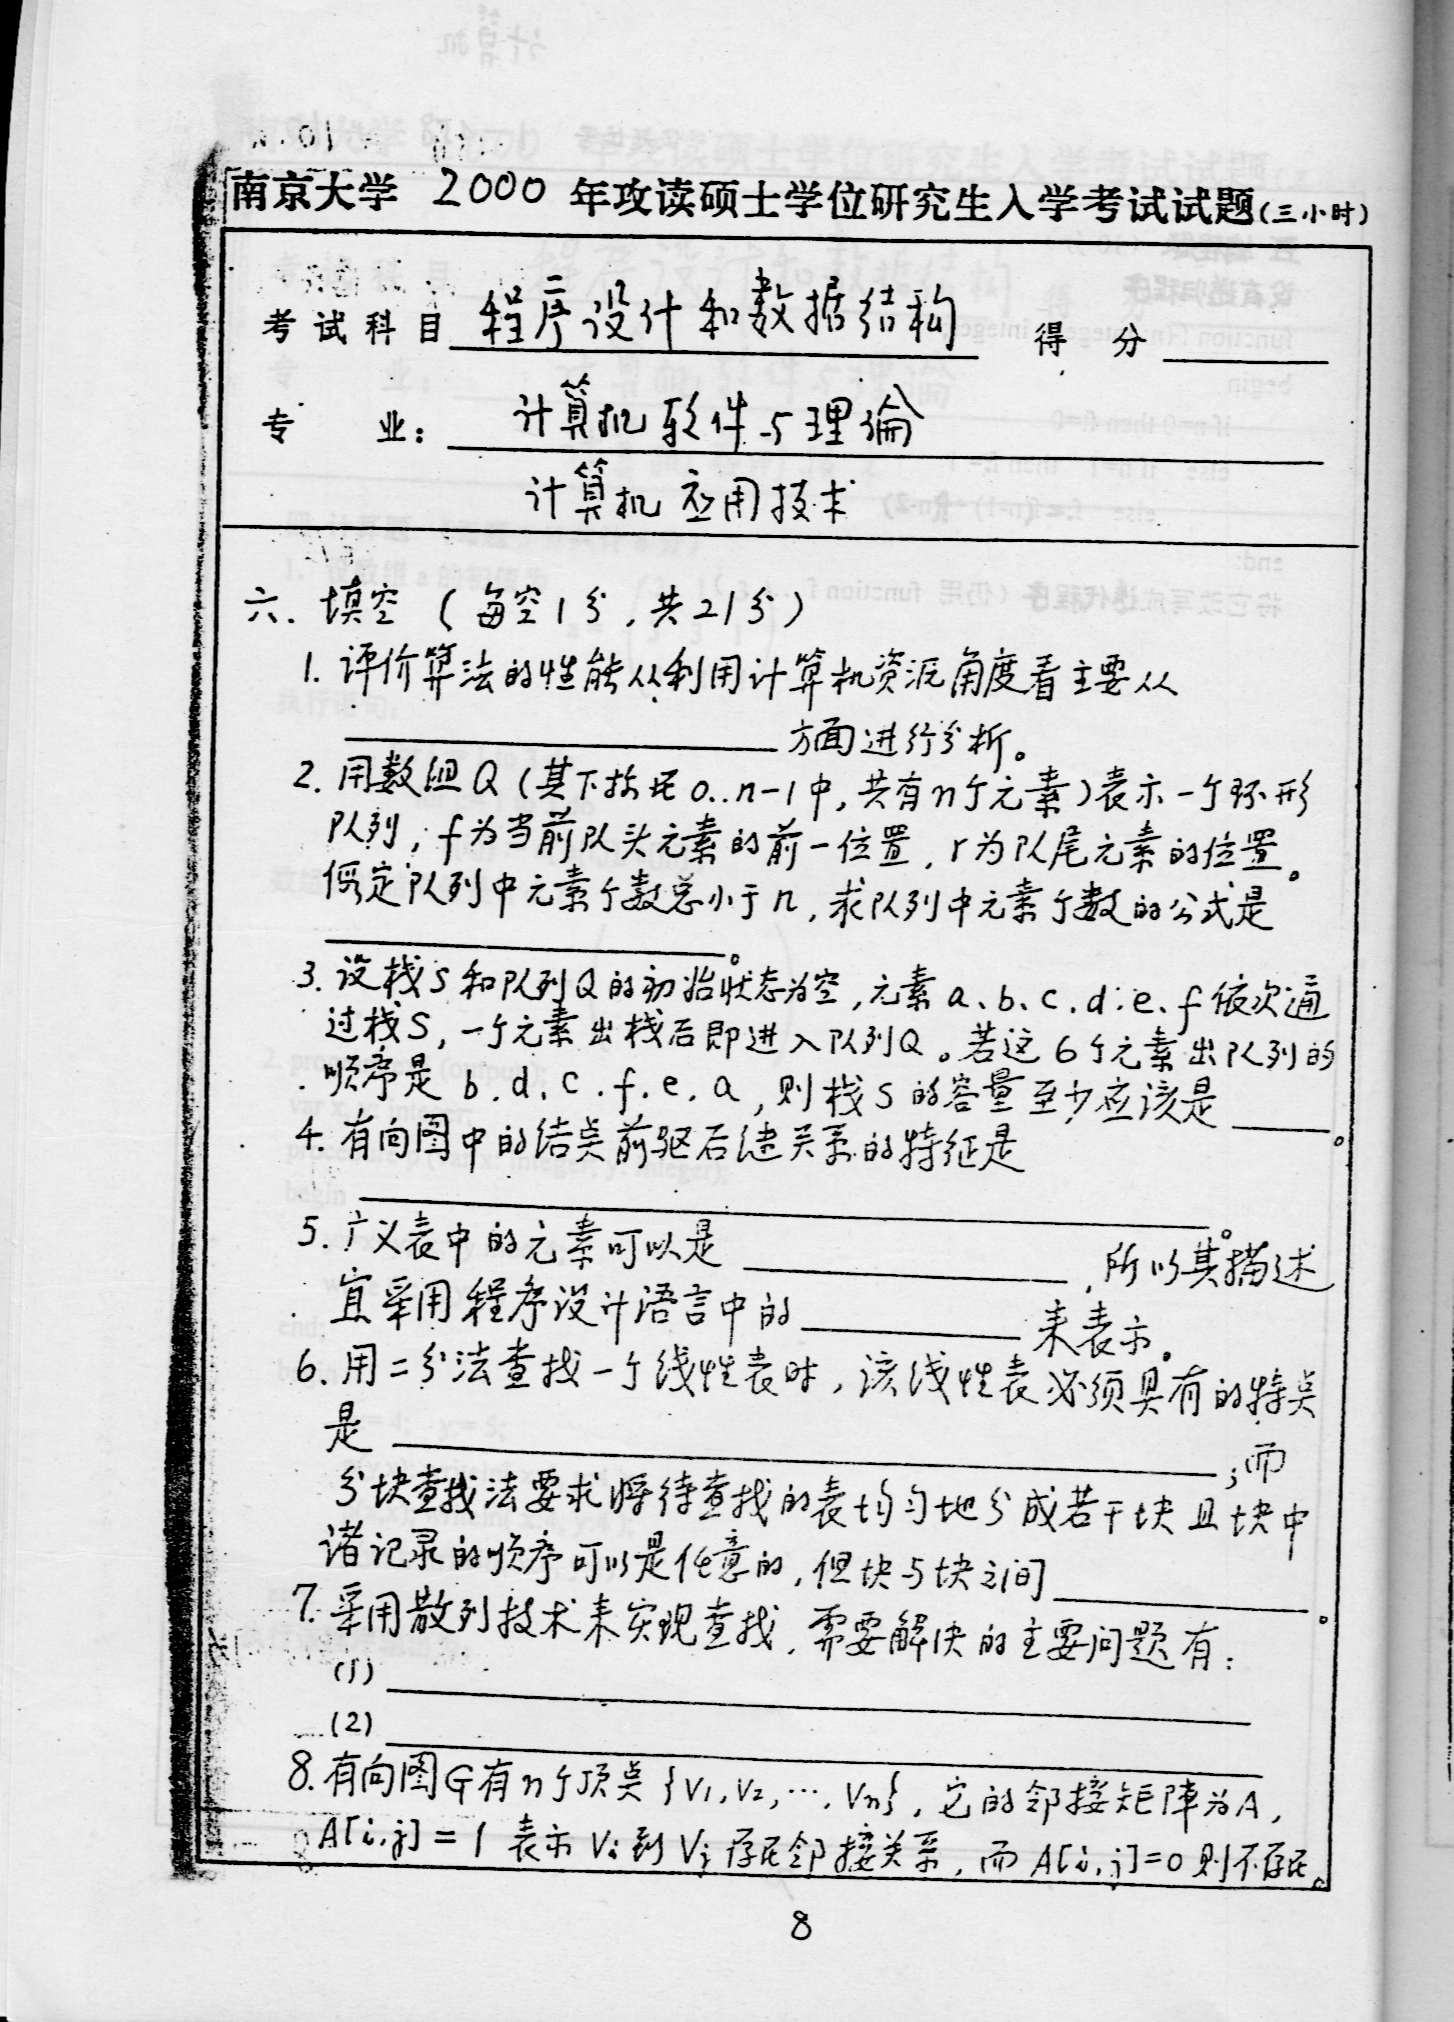 南京大学 2000 年攻读硕士学位研究生入学考试试题(三小时)
考试科目 程序设计和数据结构 得分
专业: 计算机软件与理論
计算机应用技术
六. 填空 (每空1分,共21分)
1. 评价算法的性能从利用计算机资源角度看主要从
方面进行分析。
2. 用数组Q(其下标在0..n-1中,共有n个元素)表示一个环形
队列, f为当前队头元素的前一位置, r为队尾元素的位置。
假定队列中元素个数总小于n,求队列中元素个数的公式是
。
3. 设栈S和队列Q的初始状态为空,元素a、b、c、d、e、f依次通
过栈S, 一个元素出栈后即进入队列Q。若这6个元素出队列的
顺序是 b、d、c、f、e、a,则栈S的容量至少应该是 。
4. 有向图中的结点前驱后继关系的特征是
。
5. 广义表中的元素可以是 ,所以其描述
宜采用程序设计语言中的 来表示。
6. 用二分法查找一个线性表时,该线性表必须具有的特点
是 ;而
分块查找法要求将待查找的表均匀地分成若干块且块中
诸记录的顺序可以是任意的,但块与块之间 。
7. 采用散列技术来实现查找,需要解决的主要问题有:
(1)
(2)
8. 有向图G有n个顶点{V1,V2,…,Vn},它的邻接矩阵为A,
A[i,j]=1 表示Vi到Vj存在邻接关系,而A[i,j]=0则不存在。
8